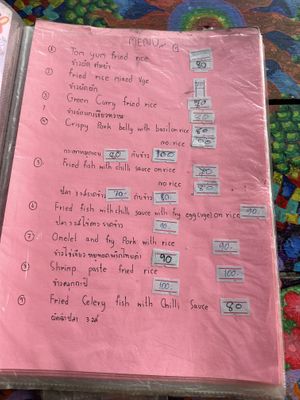 MENU
① Tom yum fried rice
ข้าวผัดต้มยำ 80
② fried rice mixed vge
ข้าวผัดผัก
③ Green Curry fried rice 80
ข้าวผัดแกงเขียวหวาน 80
④ Crispy Pork belly with basil on rice 80
no rice
กะเพราหมูกรอบ 80 กับข้าว 100
⑤ Fried fish with chilli sauce on rice
no rice 80
ปลา 3 รสราดข้าว 70 กับข้าว 80
⑥ Fried fish with chilli sauce with fry egg (vge) on rice 90.
ปลา 3 รสไข่ดาว ราดข้าว 90.
⑦ Omelet and fry Pork with rice 90.
ข้าวไข่เจียว หมูทอด 90
⑧ Shrimp paste fried rice 100.
ข้าวคลุกกะปิ 100.
⑨ Fried Celery fish with Chilli Sauce 80
ผัดฉ่าปลา 3 รส